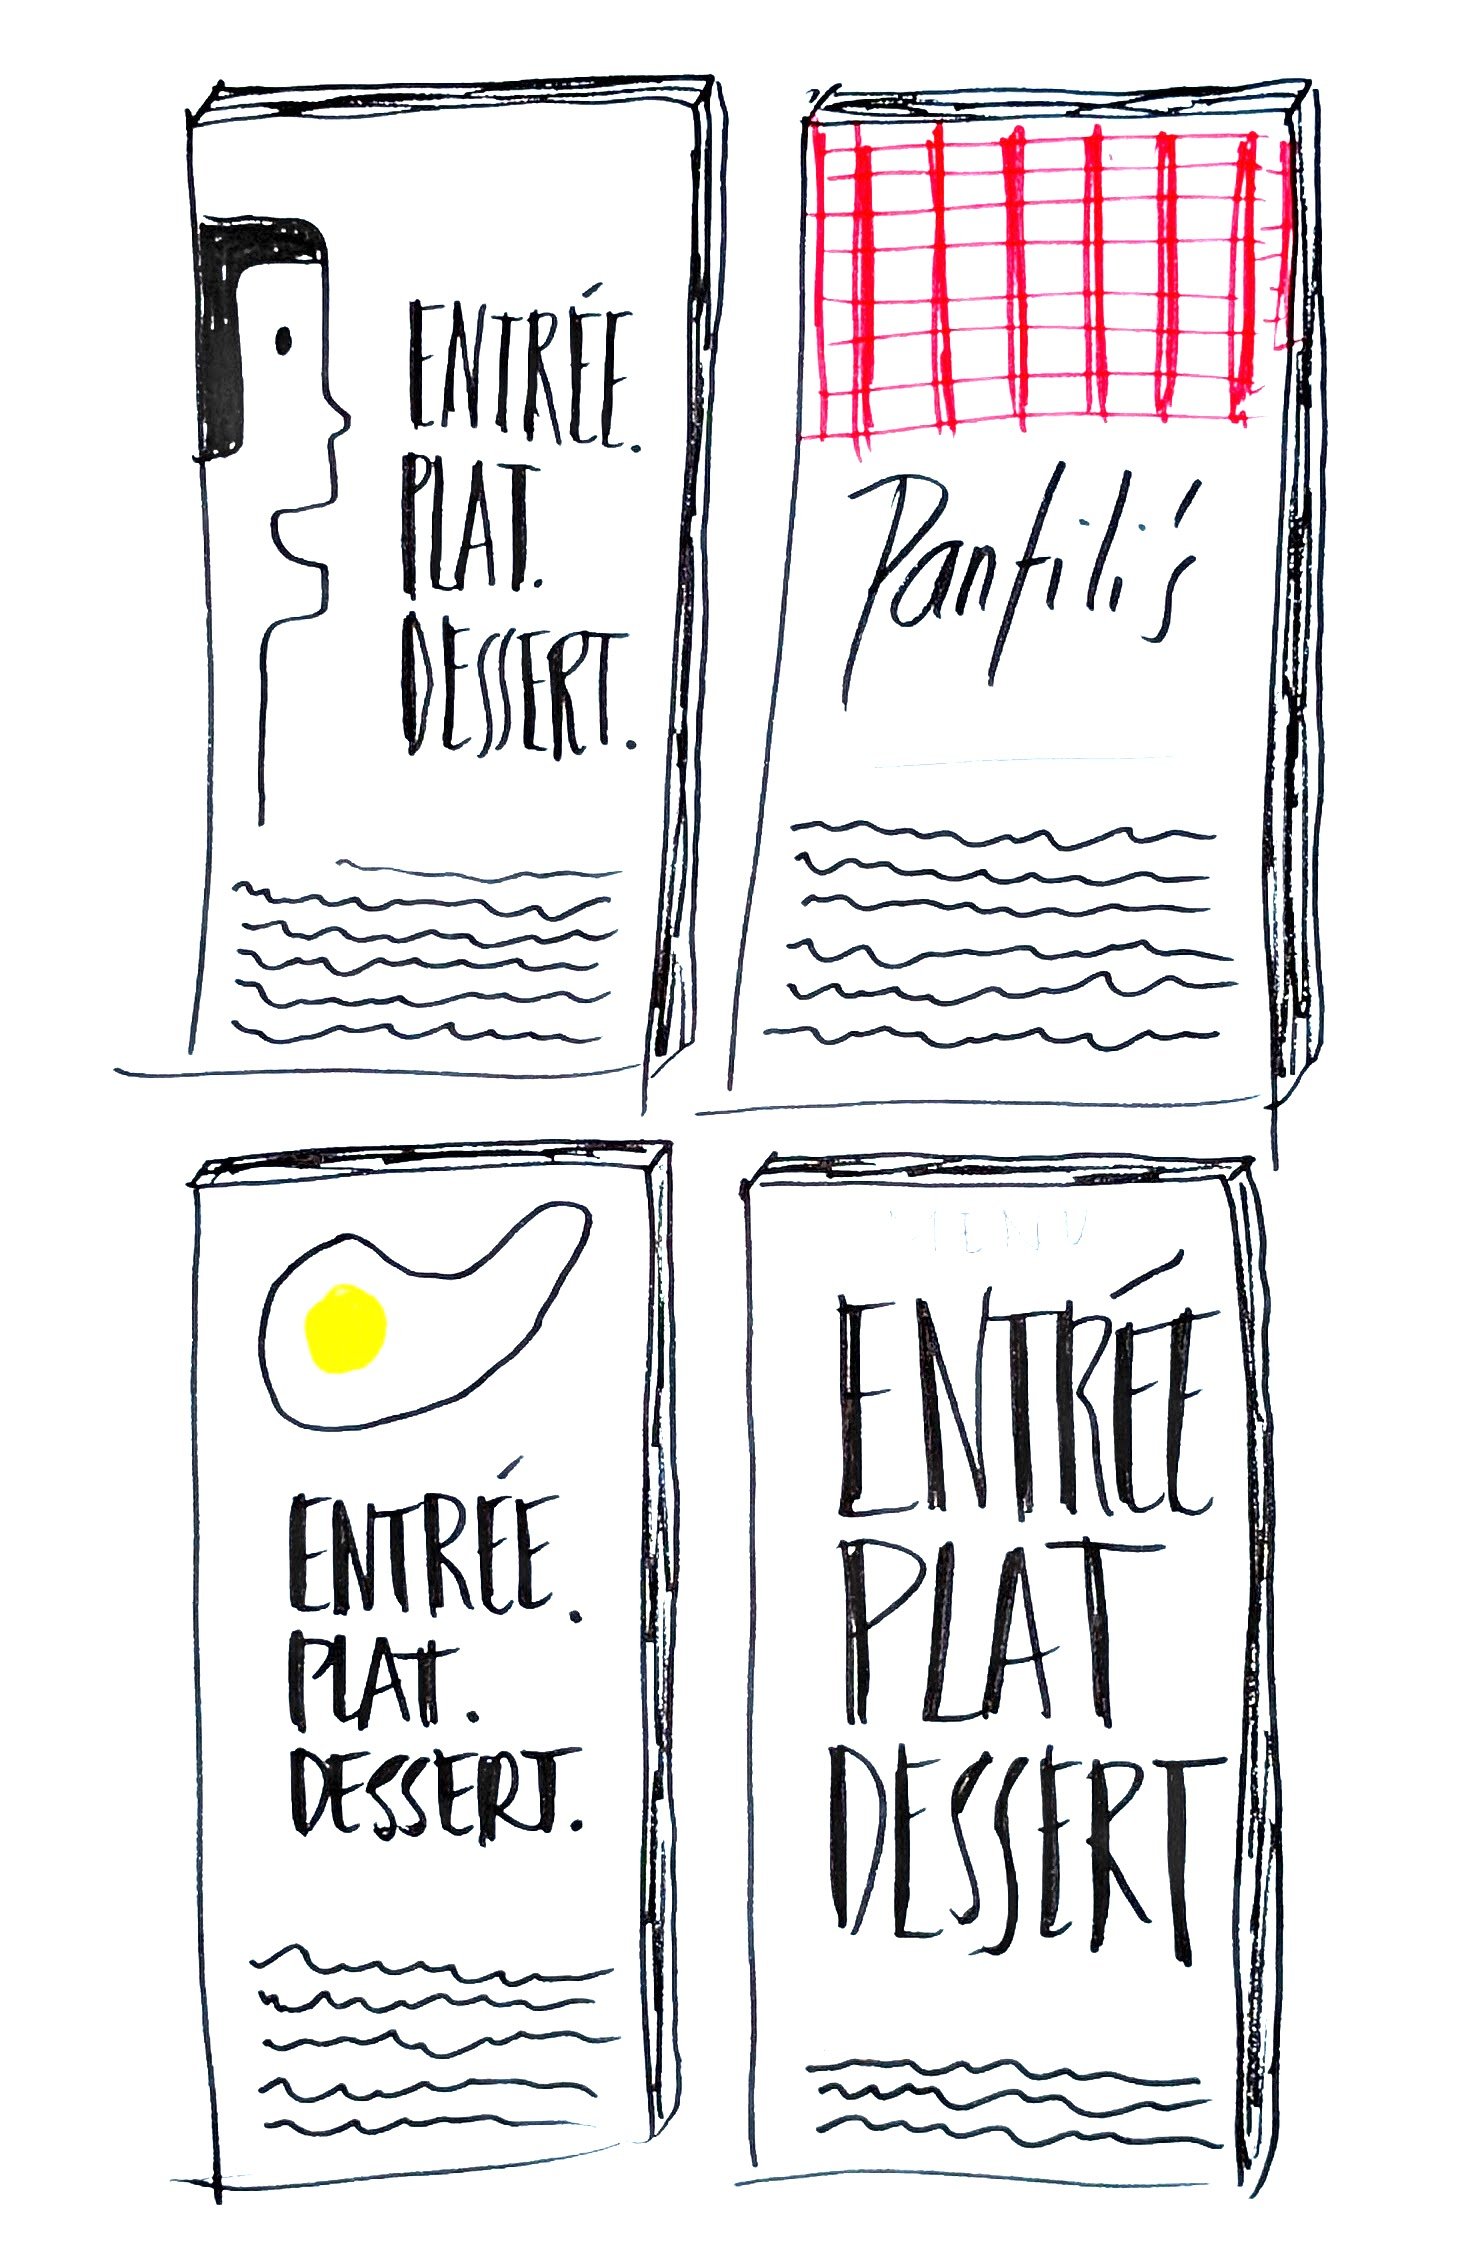 ENTRÉE.
PLAT.
DESSERT.
Panfili's
ENTRÉE.
PLAT.
DESSERT.
MENU
ENTRÉE
PLAT
DESSERT